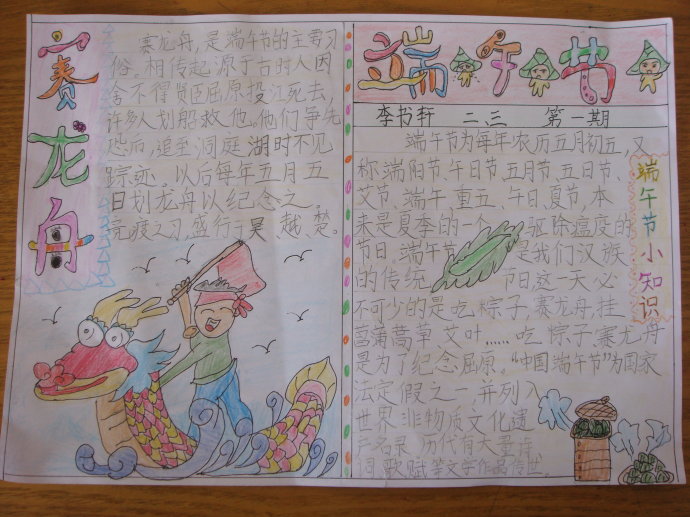 赛龙舟
赛龙舟，是端午节的主要习
俗。相传起源于古时人因
舍不得贤臣屈原投江死去，
许多人划船救他。他们争先
恐后，追至洞庭湖时不见
踪迹。以后每年五月五
日划龙舟以纪念之。
竞渡之习，盛行于吴、越、楚。
端午节
李书轩 二、三 第一期
端午节为每年农历五月初五，又
称端阳节、午日节、五月节、五日节、
艾节、端午、重五、午日、夏节，本
来是夏季的一个驱除瘟疫的
节日，端午节是我们汉族
的传统节日，这一天必
不可少的是吃粽子，赛龙舟，挂
菖蒲蒿草艾叶……吃粽子赛龙舟
是为了纪念屈原。“中国端午节”为国家
法定假之一并列入
世界非物质文化遗
名录 历代有大量诗
词歌赋等文学作品传世。
端午节小知识